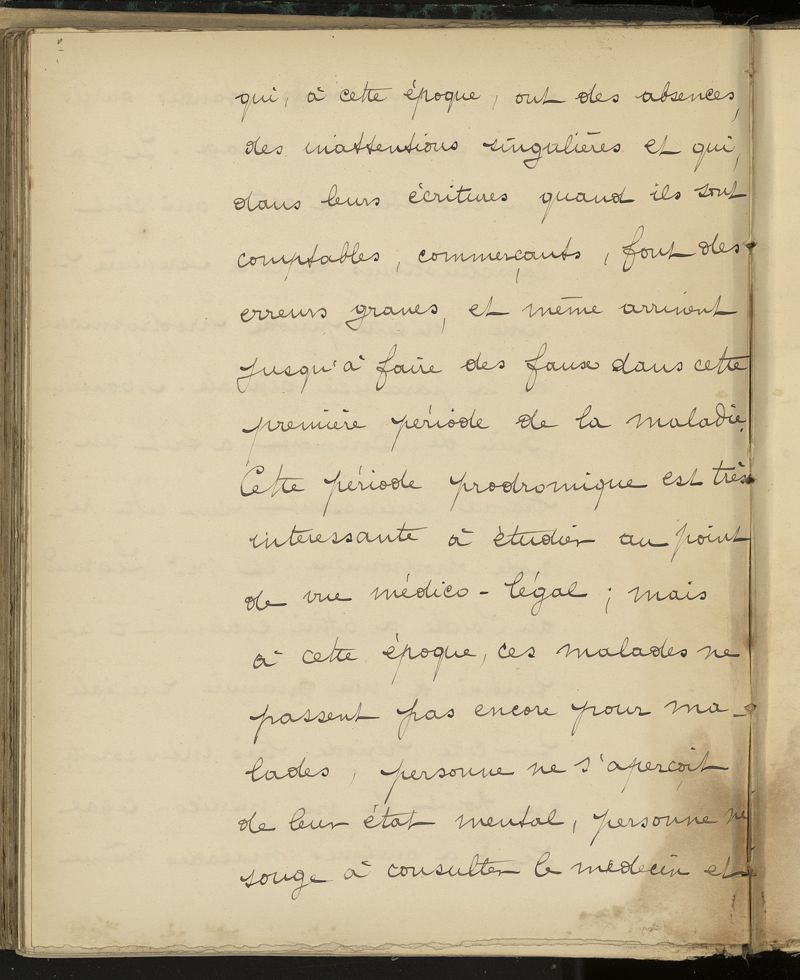 qui, à cette époque, ont des absences,
des inattentions singulières et qui,
dans leurs écritures quand ils sont
comptables, commerçants, font des
erreurs graves, et même arrivent
jusqu'à faire des faux dans cette
première période de la maladie.
Cette période prodromique est très
interessante à étudier au point
de vue médico-légal ; mais
à cette époque, ces malades ne
passent pas encore pour ma-
lades, personne ne s'aperçoit
de leur état mental, personne ne
songe à consulter le médecin et